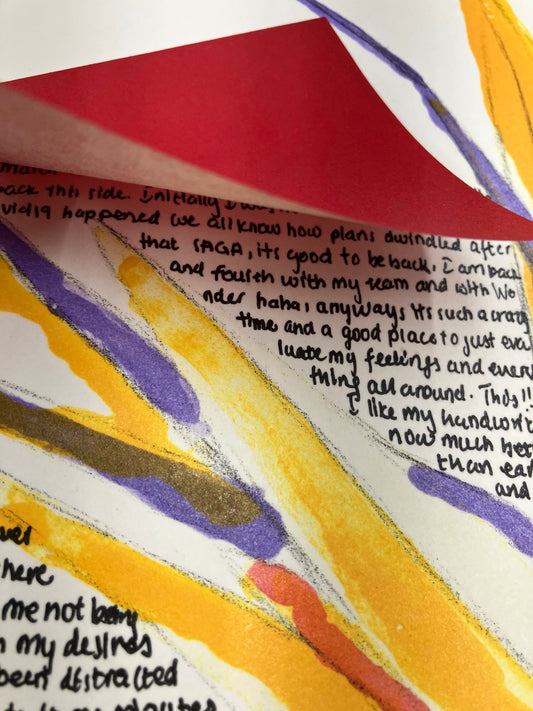 back this side. Initially I was
vid19 happened we all know how plans dwindled after
that SAGA, its good to be back. I am back
and fourth with my team and with Wo
nder haha, anyways its such a crazy
time and a good place to just eva
luate my feelings and every
thing all around. This!!
I like my handwrit
now much bet
than ear
and
here
me not being
my desires
been distracted